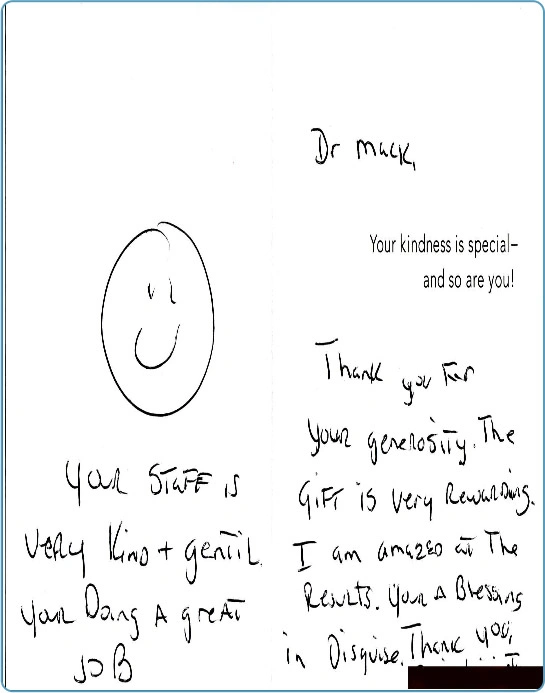 Dr Mack,
Your kindness is special–
and so are you!
Thank you for
your generosity. The
GIFT is very Rewarding.
I am amazed at The
Results. Your A Blessing
in Disguise. Thank you,
Your STAFF is
very Kind + gentil.
your Doing A great
JOB